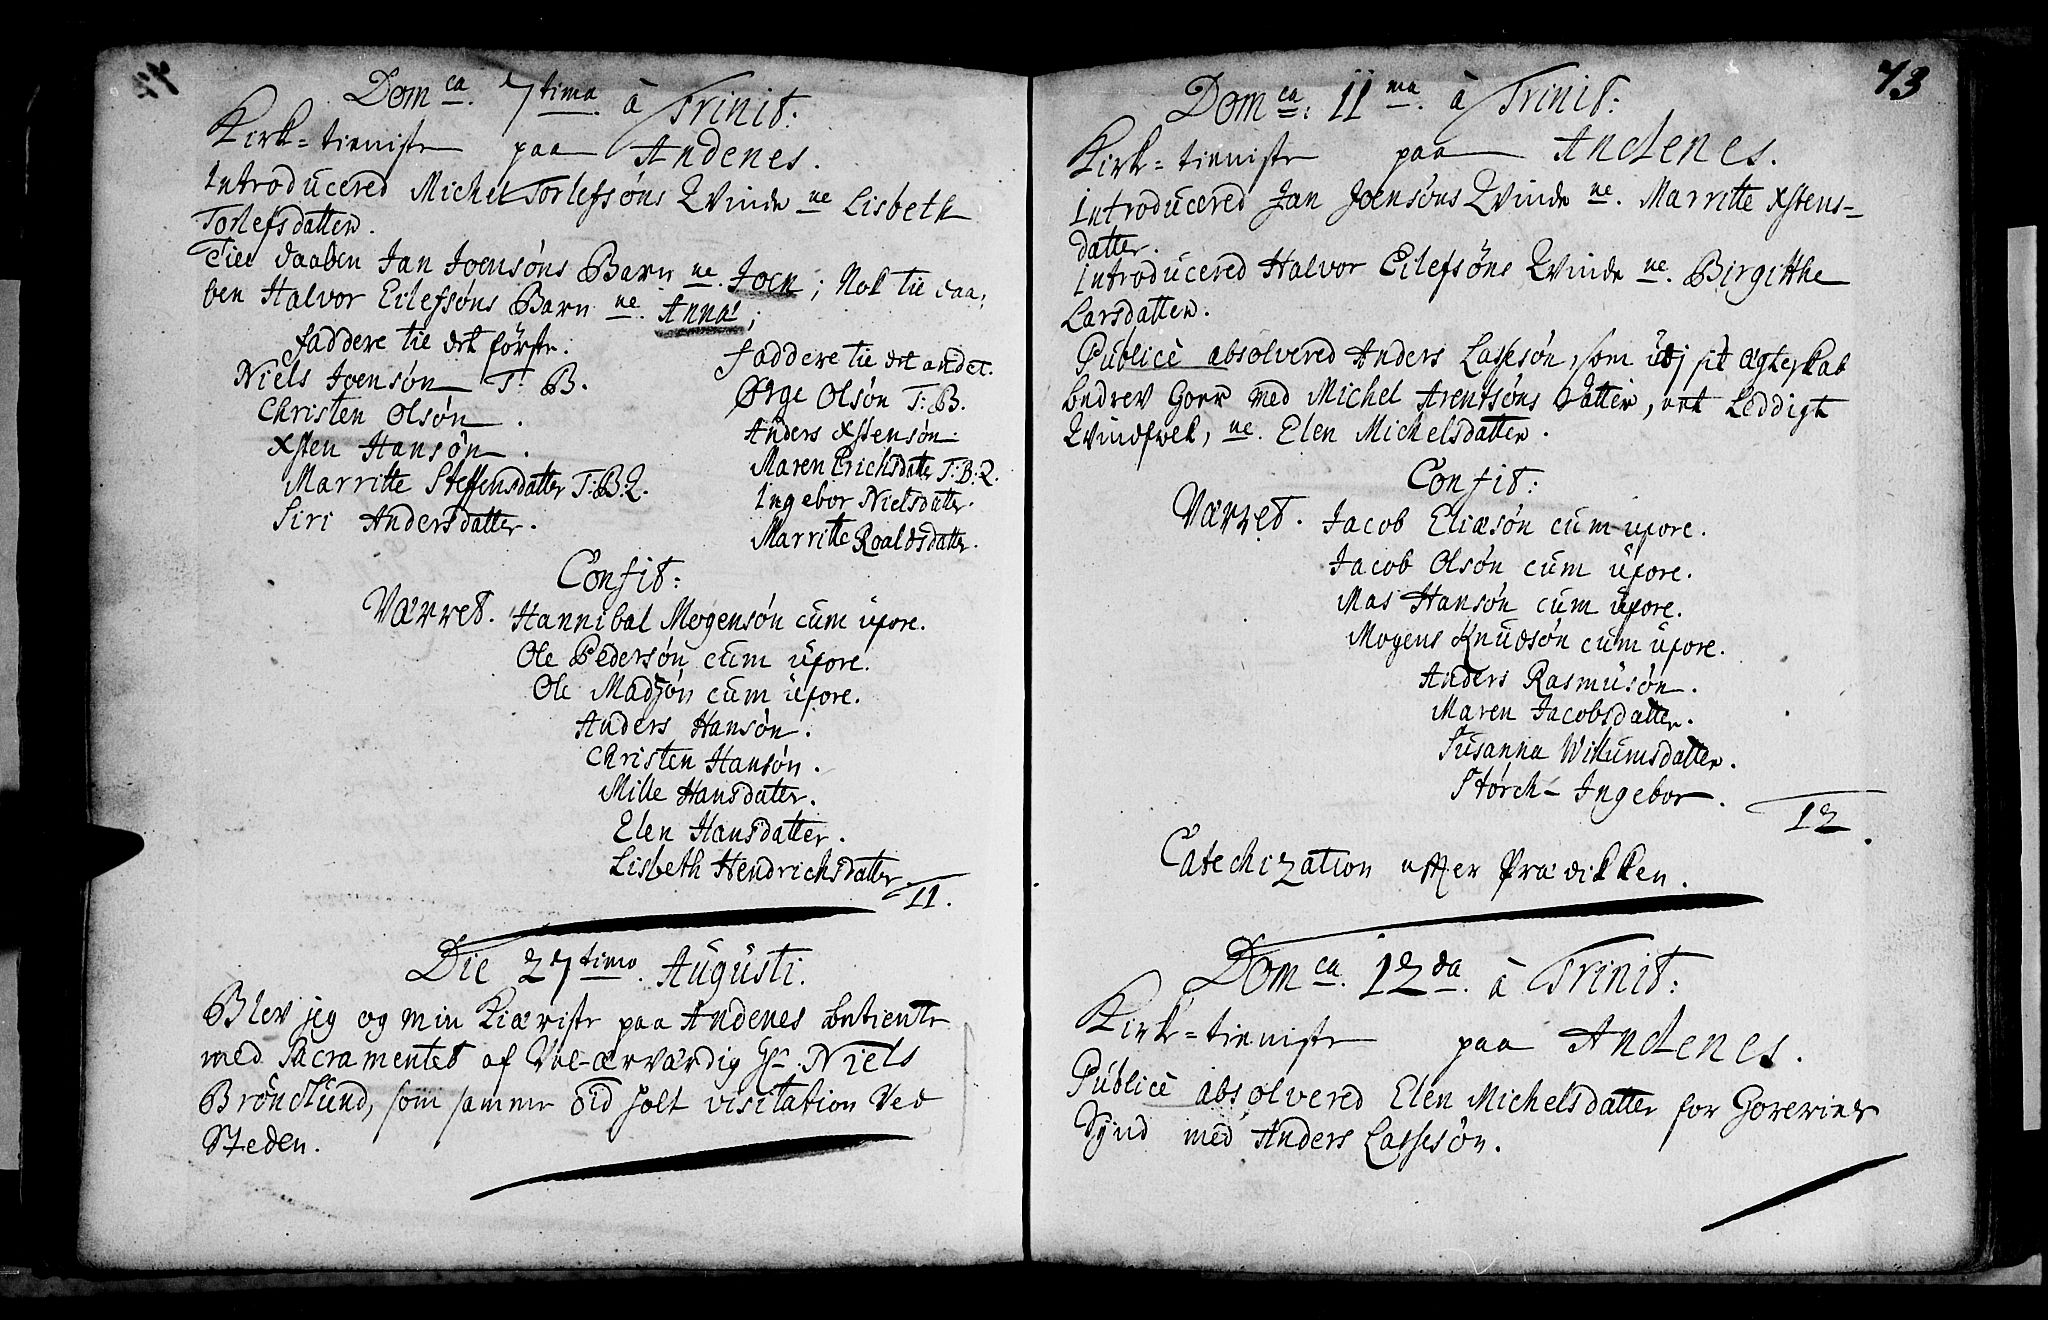 Dom ca. 7 tima. à Trinit:
Kirk=tieniste paa Andenes.
Introducered Michel Torlefsöns Qvinde ne Lisbeth
Torlefsdatter.
Till daaben Jan Joensöns Barn ne. Joen; Nok til daa=
ben Halvor Eilefsöns Barn ne. Anna;
Faddere til det förste.
Niels Joensön T: B.
Christen Olsön.
Xsten Hansön.
Marritte Steffensdatter T:B:Q.
Siri Andersdatter.
Faddere til det andet.
Ørge Olsön T:B.
Anders Xstensön.
Maren Erichsdatter T:B:Q.
Ingebor Nielsdatter.
Marritte Roaldsdatter.
Confit:
Værret. Hannibal Mogensön cum uxore.
Ole Pedersön cum uxore.
Ole Madzön cum uxore.
Anders Hansön.
Christen Hansön.
Mille Hansdatter.
Elen Hansdatter.
Lisbeth Hendrichsdatter
11.
Die 27 timo. Augusti.
Blev jeg og min Kiæriste paa Andenes betiente
med Sacramentet af Vel-ærværdig Hr. Niels
Brönlund, som samme Tid holt visitation Ved
Steden.
73
Dom ca. 11 ma. à Trinit:
Kirk=tieniste paa Andenes.
Introducered Jan Joensöns Qvinde ne. Marritte Xstens=
datter.
Introducered Halvor Eilefsöns Qvinde ne. Birgitthe
Larsdatter.
Publicè absolvered Anders Lassesön, som udj sit ægteskab
bedrev Hoer med Michel Arentsöns Datter, et Leddigt
Qvindfolk, ne. Elen Michelsdatter.
Confit:
Værret. Jacob Eliæsön cum uxore.
Jacob Olsön cum uxore.
Mas Hansön cum uxore.
Mogens Knudsön cum uxore.
Anders Rasmusön.
Maren Jacobsdatter.
Susanna Willumsdatter.
Störch- Ingebor.
12.
Catechization efter Prædikken.
Dom ca. 12 da. à Trinit:
Kirk=tieniste paa Andenes.
Publicè absolvered Elen Michelsdatter for Horeries
Synd med Anders Lassesön.